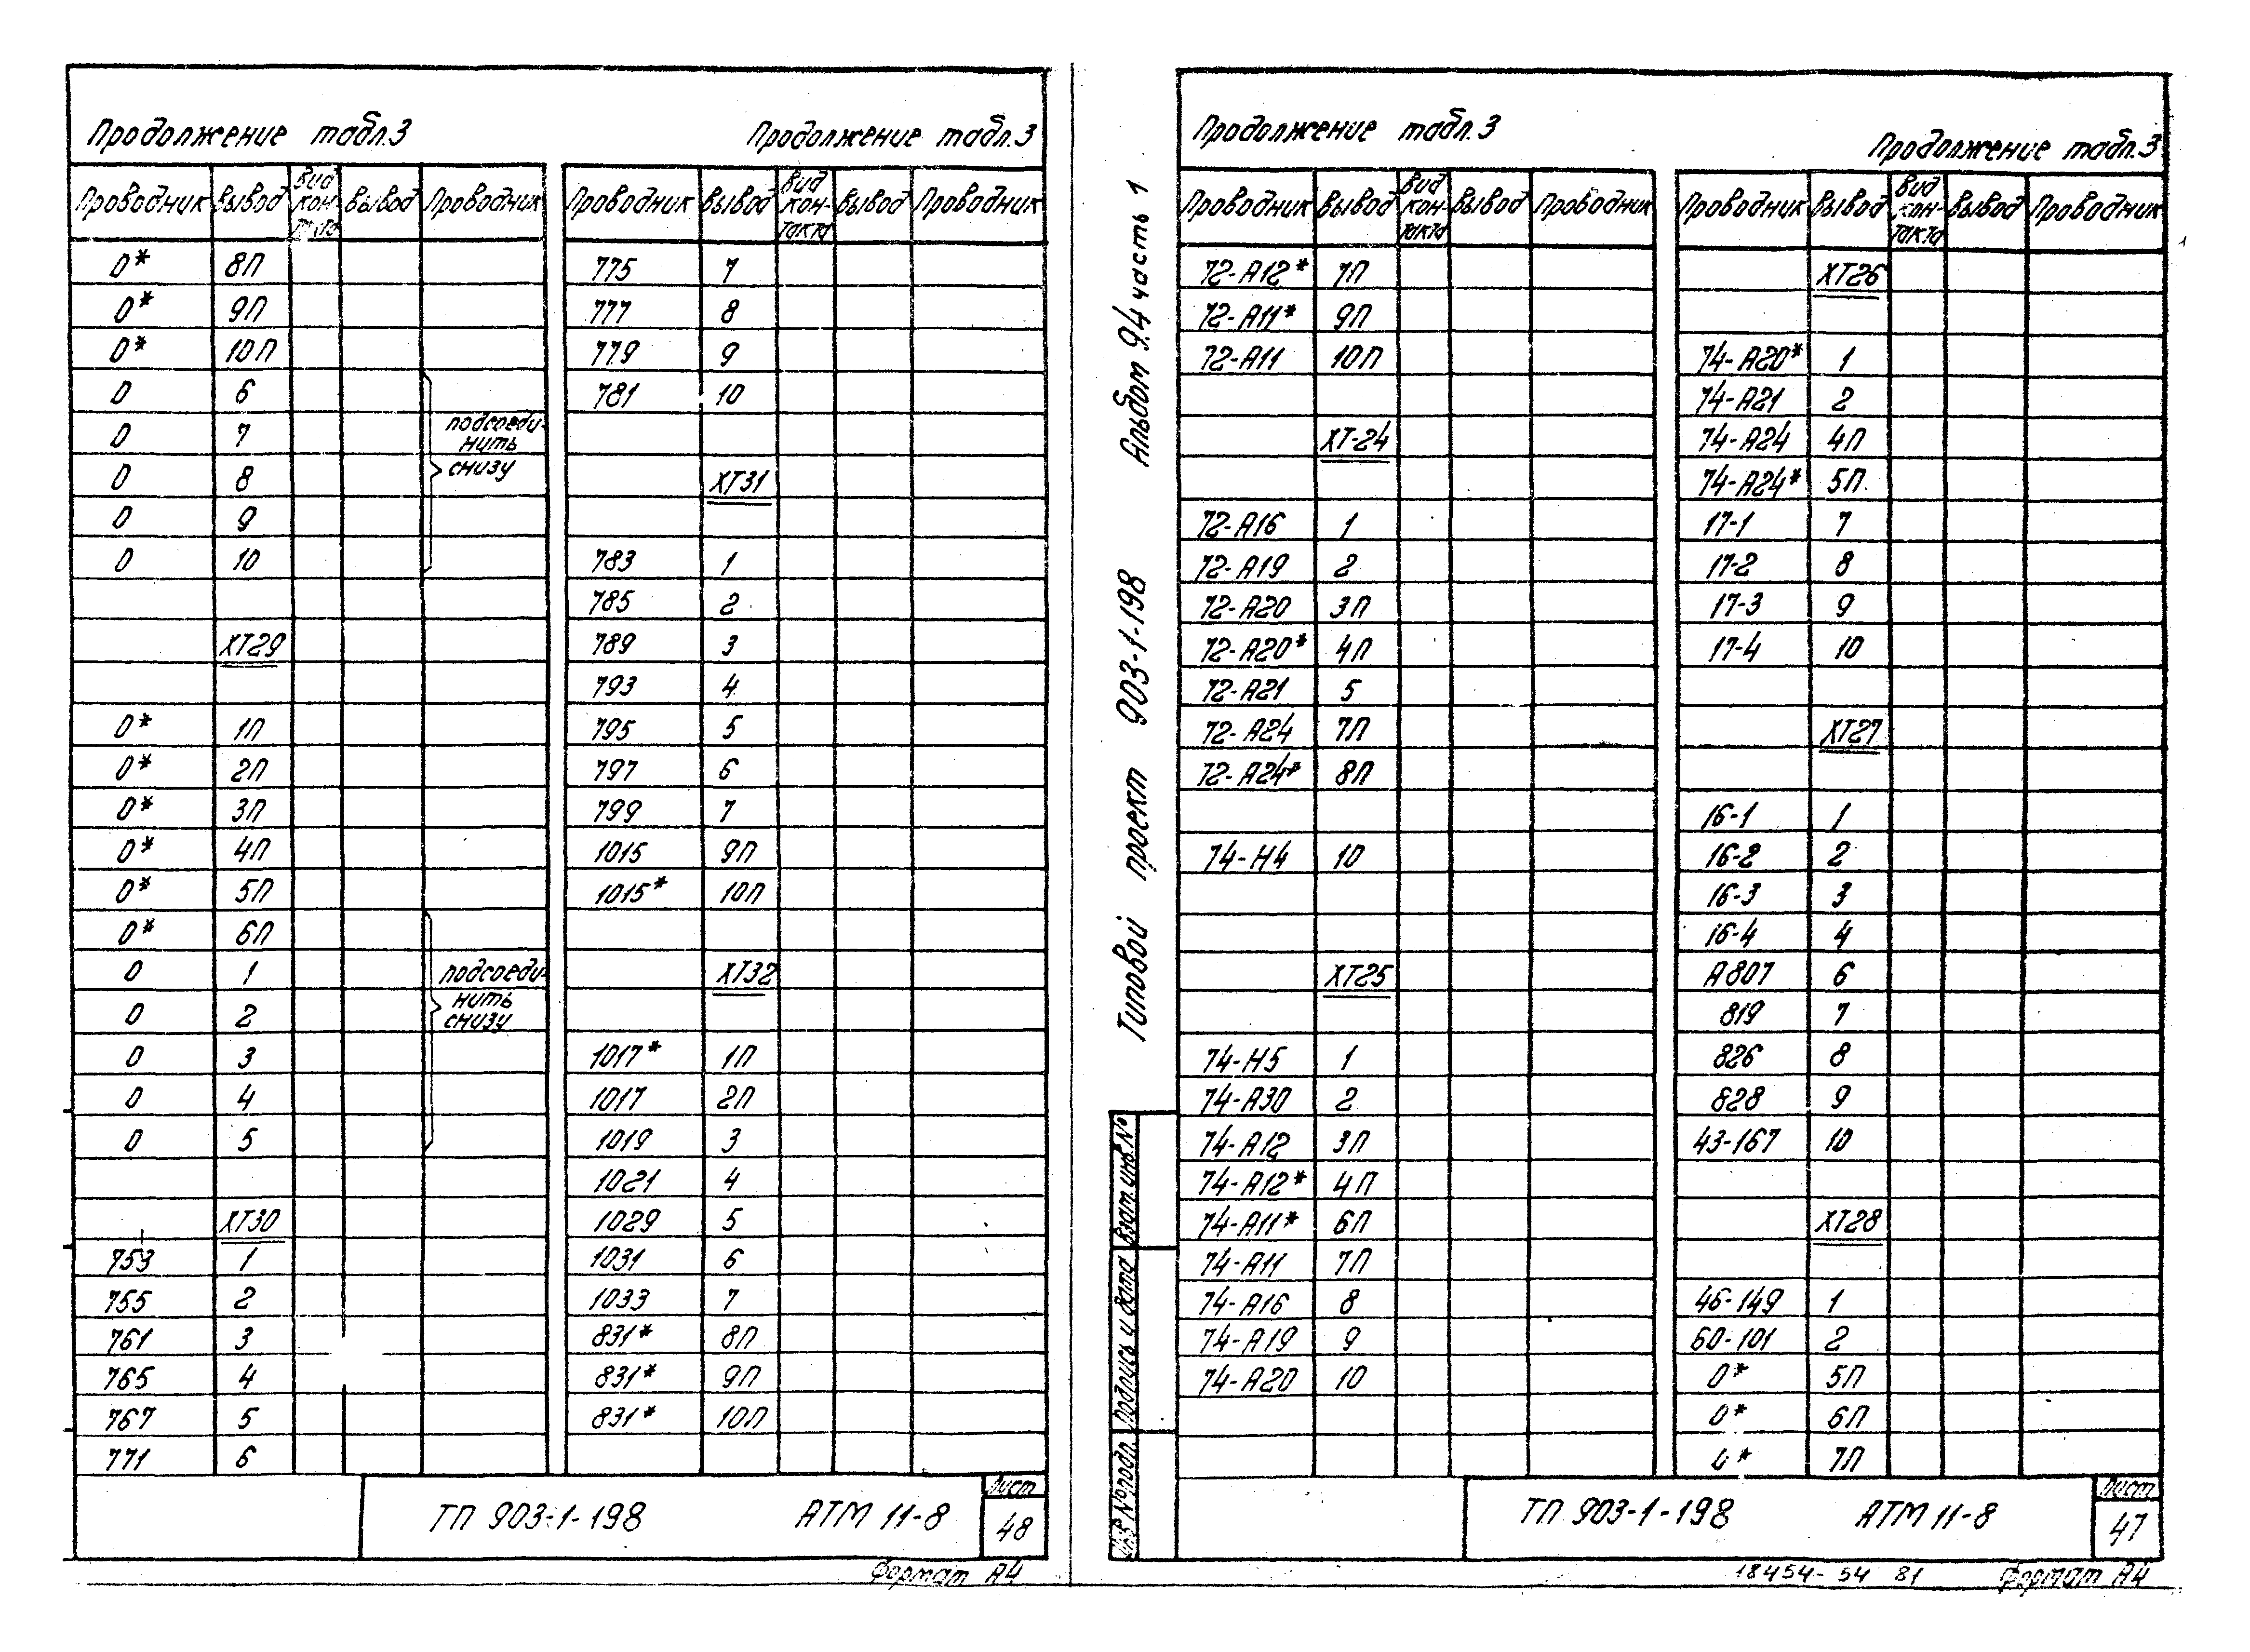 Продолжение табл.3
Проводник Вывод Вид кон-такта Вывод Проводник
0* 8П
0* 9П
0* 10П
0 6
0 7
0 8
0 9
0 10
подсоеди-
нить
снизу
ХТ29
0* 1П
0* 2П
0* 3П
0* 4П
0* 5П
0* 6П
0 1
0 2
0 3
0 4
0 5
подсоеди-
нить
снизу
ХТ30
753 1
755 2
761 3
765 4
767 5
771 6
Продолжение табл.3
Проводник Вывод Вид кон-такта Вывод Проводник
775 7
777 8
779 9
781 10
ХТ31
783 1
785 2
789 3
793 4
795 5
797 6
799 7
1015 9П
1015* 10П
ХТ32
1017* 1П
1017 2П
1019 3
1021 4
1029 5
1031 6
1033 7
831* 8П
831* 9П
831* 10П
ТП 903-1-198 АТМ 11-8
Лист
48
Формат А4
Типовой проект 903-1-198 Альбом 9.4 часть 1
Взам. инв. №
Подпись и дата
Инв № подл.
Продолжение табл.3
Проводник Вывод Вид кон-такта Вывод Проводник
72-А12* 7П
72-А11* 9П
72-А11 10П
ХТ-24
72-А16 1
72-А19 2
72-А20 3П
72-А20* 4П
72-А21 5
72-А24 7П
72-А24* 8П
74-Н4 10
ХТ25
74-Н5 1
74-А30 2
74-А12 3П
74-А12* 4П
74-А11* 6П
74-А11 7П
74-А16 8
74-А19 9
74-А20 10
Продолжение табл.3
Проводник Вывод Вид кон-такта Вывод Проводник
ХТ26
74-А20* 1
74-А21 2
74-А24 4П
74-А24* 5П
17-1 7
17-2 8
17-3 9
17-4 10
ХТ27
16-1 1
16-2 2
16-3 3
16-4 4
А807 6
819 7
826 8
828 9
43-167 10
ХТ28
46-149 1
60-101 2
0* 5П
0* 6П
0* 7П
ТП 903-1-198 АТМ 11-8
Лист
47
18454-54 81 Формат А4